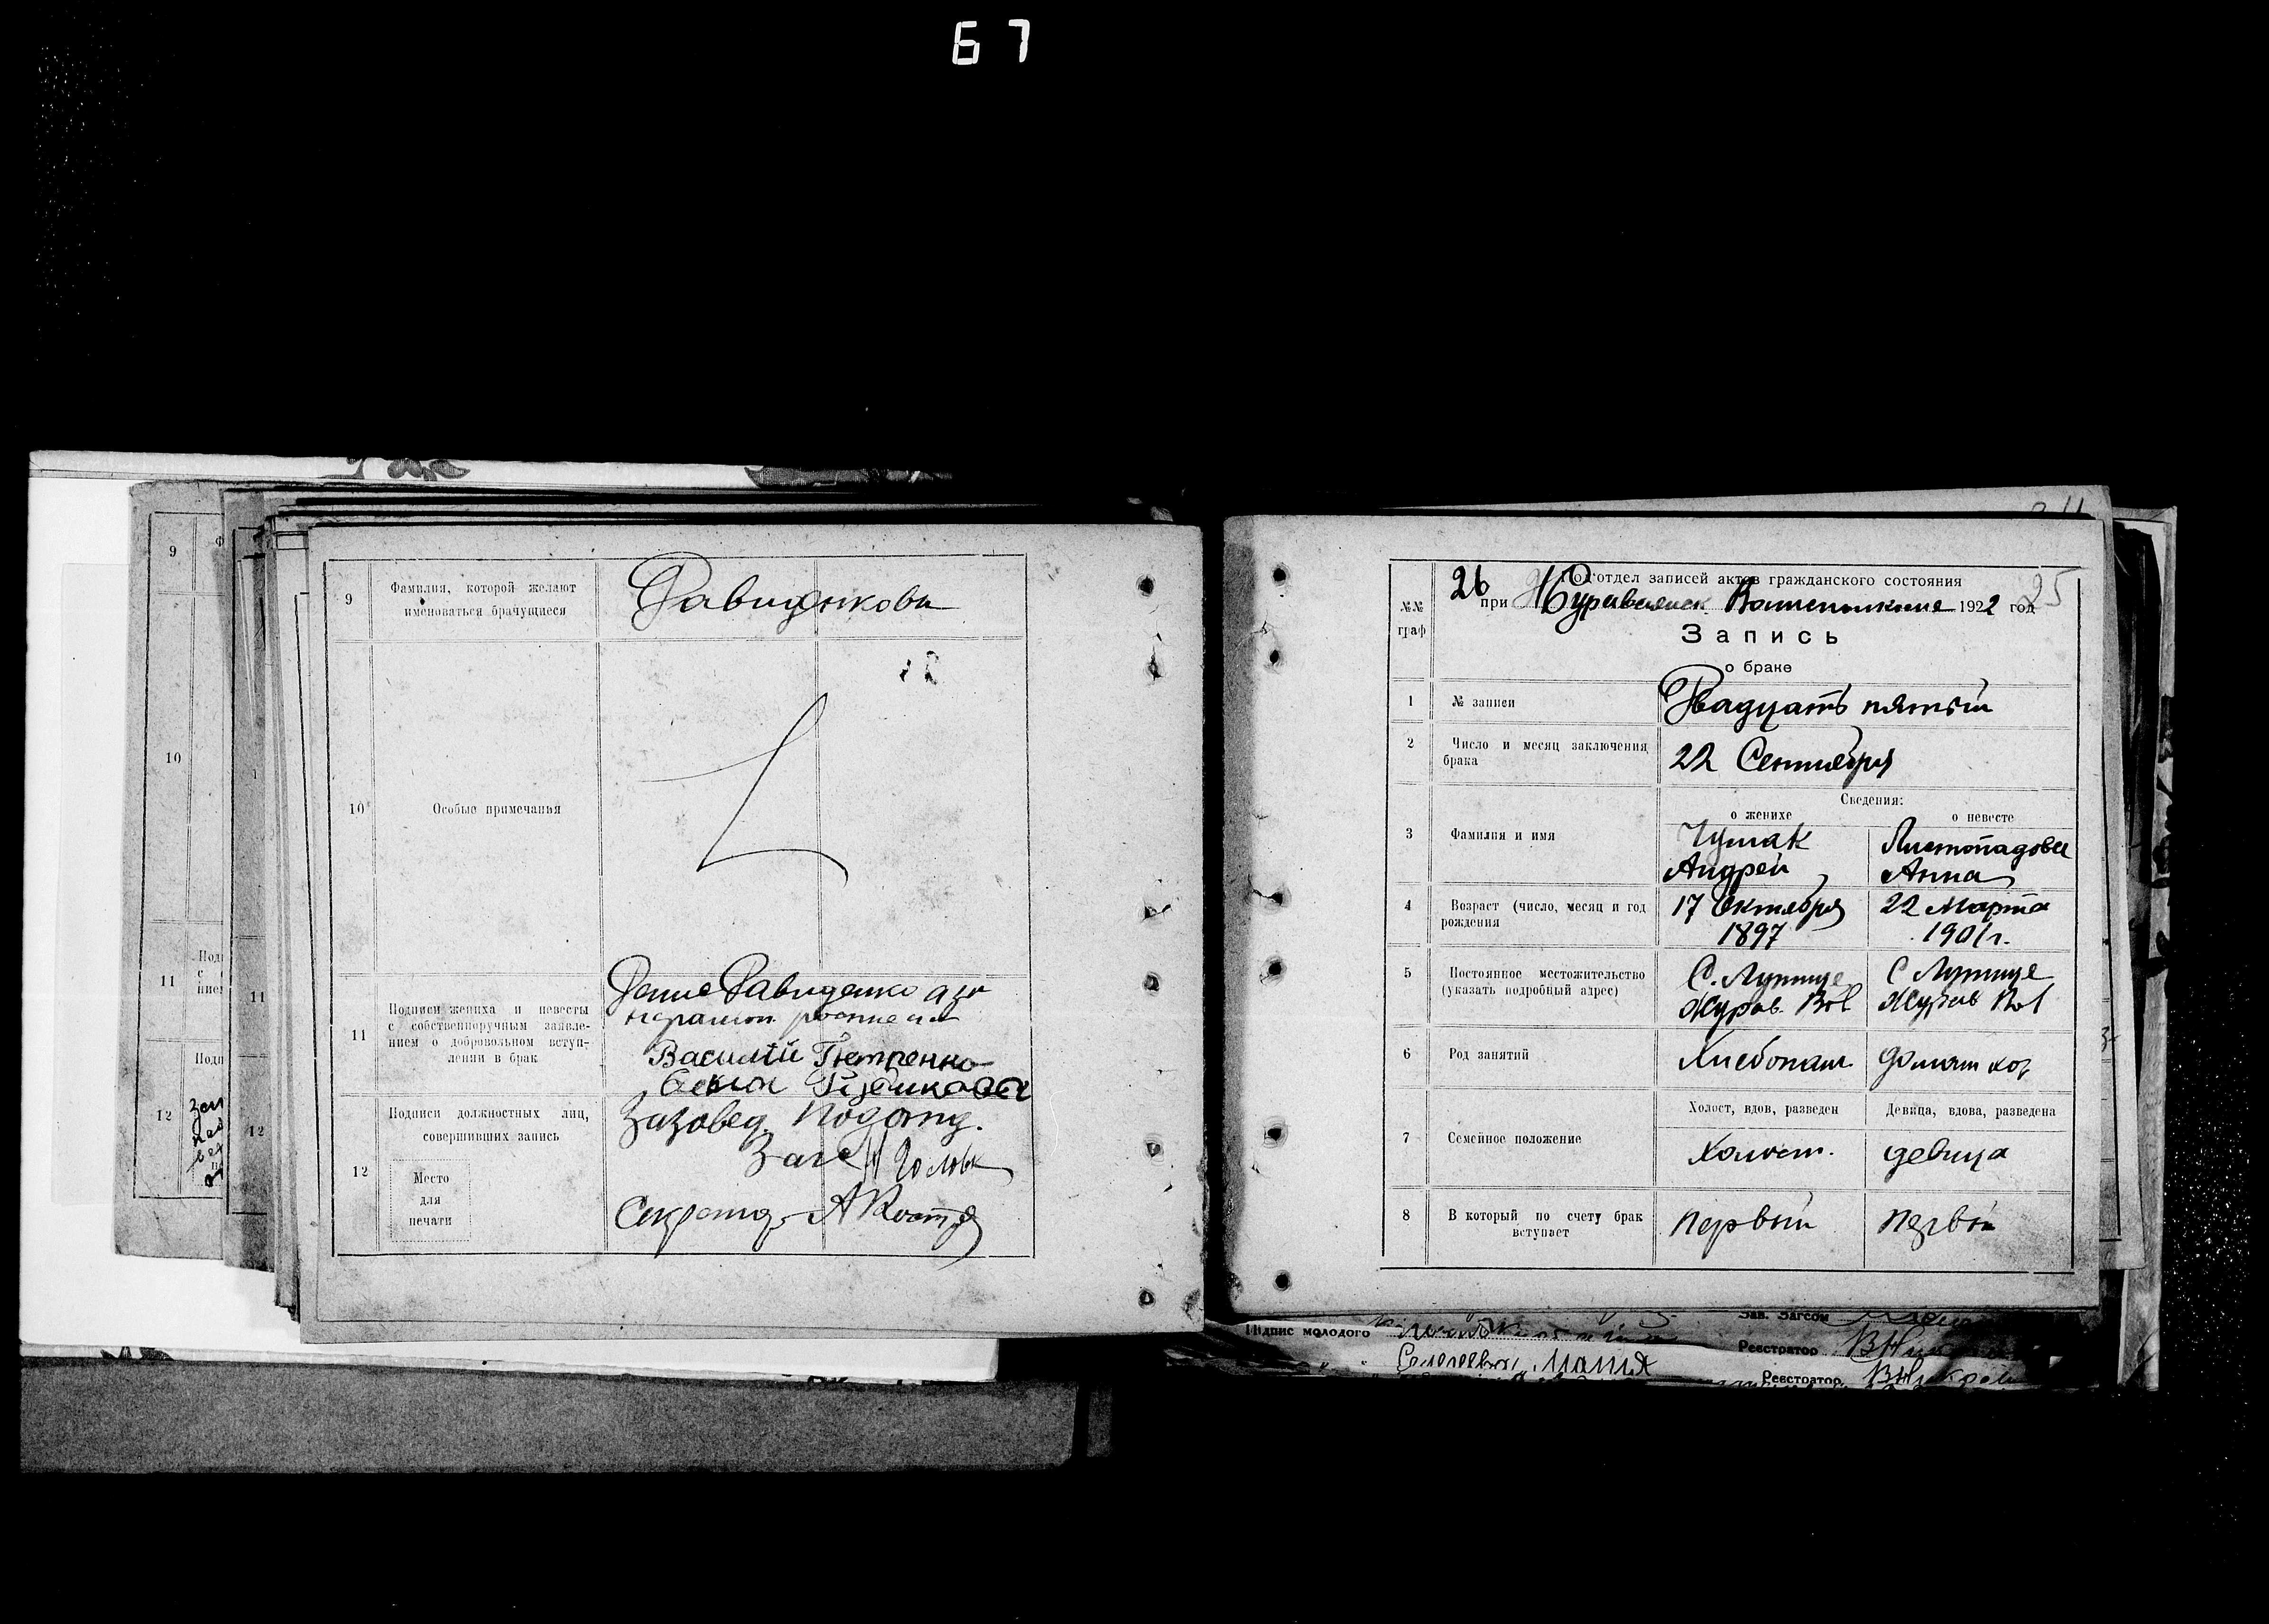 67
9
Фамилия, которой желают
именоваться брачущиеся
Давиденковы
10
Особые примечания
11
Подписи жениха и невесты
с собственноручным заявле-
нием о добровольном вступ-
лении в брак
Давиденко а за
Василий Петренко
12
Подписи должностных лиц,
совершивших запись
Место
для
печати
Зазовед. Подотд.
Загс
Секретар
9
10
11
12
11
12
№№
граф
26
Подотдел записей актов гражданского состояния
при Журавлянск 1922 год
25
Запись
о браке
1
№ записи
Двадцать пятый
2
Число и месяц заключения
брака
22 Сентября
Сведения:
о женихе
о невесте
3
Фамилия и имя
Чумак
Андрей
Листопадова
Анна
4
Возраст (число, месяц и год
рождения
17 Октября
1897
22 Марта
1901 г.
5
Постоянное местожительство
(указать подробный адрес)
С.
Журав. Вол
С
Журав Вол
6
Род занятий
Хлебопаш
домаш хоз
7
Семейное положение
Холост, вдов, разведен
Девица, вдова, разведена
Холост.
девица
8
В который по счету брак
вступает
Первый
Первый
Підпис молодого
Зав. Загсом
Реестратор
Реестратор